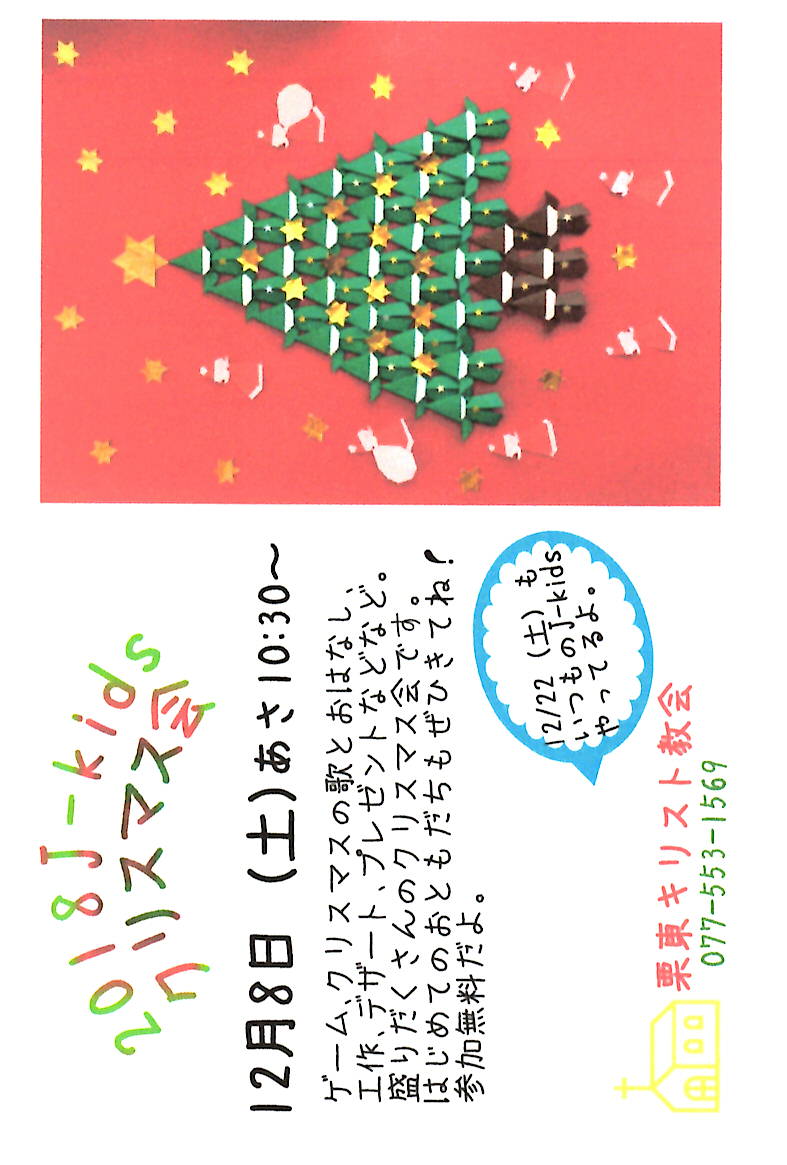 2018J-kids
クリスマス会
12月8日（土）あさ10:30～
ゲーム、クリスマスの歌とおはなし、
工作、デザート、プレゼントなどなど。
盛りだくさんのクリスマス会です。
はじめてのおともだちもぜひきてね！
参加無料だよ。
12/22（土）も
いつものJ-kids
やってるよ。
栗東キリスト教会
077-553-1569